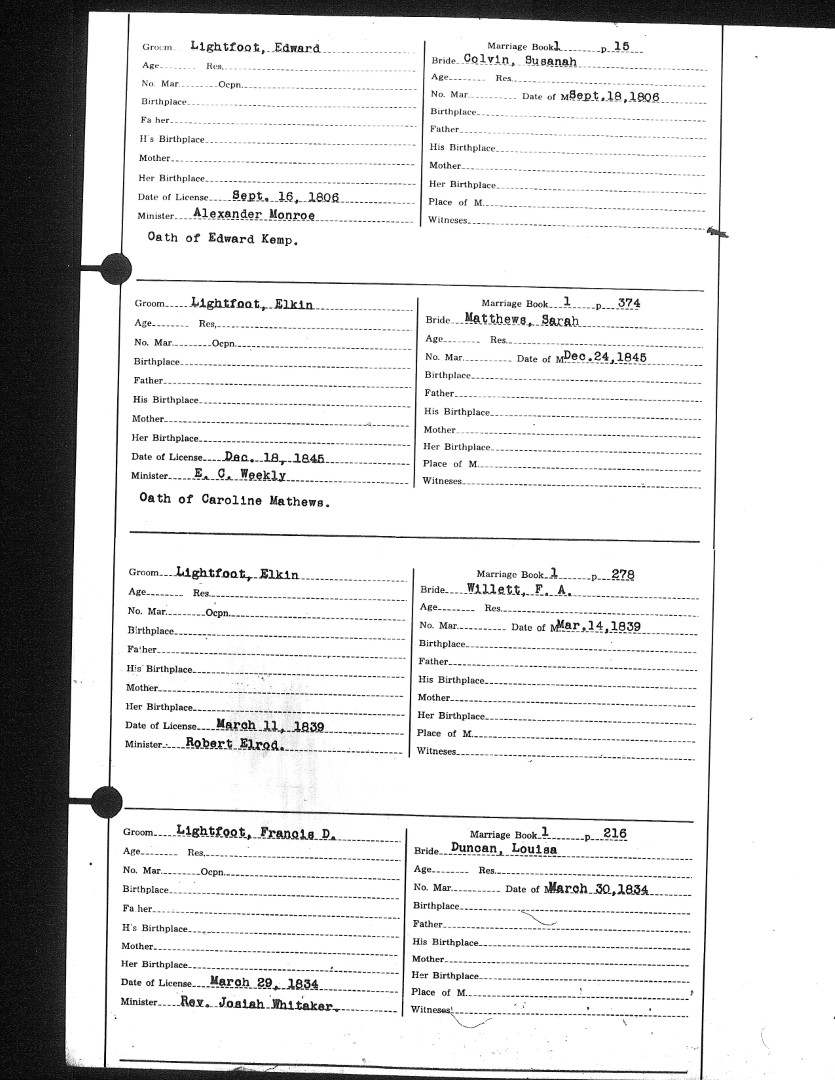 Groom Lightfoot, Edward
Age Res.
No. Mar. Ocpn.
Birthplace
Fa her
H's Birthplace
Mother
Her Birthplace
Date of License Sept. 16, 1806
Minister Alexander Monroe
Oath of Edward Kemp.
Marriage Book 1 p 15
Bride Colvin, Susanah
Age Res.
No. Mar. Date of M Sept.18,1806
Birthplace
Father
His Birthplace
Mother
Her Birthplace
Place of M.
Witneses
Groom Lightfoot, Elkin
Age Res.
No. Mar. Ocpn.
Birthplace
Father
His Birthplace
Mother
Her Birthplace
Date of License Dec. 18, 1845
Minister E. C. Weekly
Oath of Caroline Mathews.
Marriage Book 1 p 374
Bride Matthews, Sarah
Age Res.
No. Mar. Date of M Dec.24,1845
Birthplace
Father
His Birthplace
Mother
Her Birthplace
Place of M.
Witneses
Groom Lightfoot, Elkin
Age Res.
No. Mar. Ocpn.
Birthplace
Father
His Birthplace
Mother
Her Birthplace
Date of License March 11, 1839
Minister Robert Elrod.
Marriage Book 1 p 278
Bride Willett, F. A.
Age Res.
No. Mar. Date of M Mar.14,1839
Birthplace
Father
His Birthplace
Mother
Her Birthplace
Place of M.
Witneses
Groom Lightfoot, Francis D.
Age Res.
No. Mar. Ocpn.
Birthplace
Fa her
H's Birthplace
Mother
Her Birthplace
Date of License March 29, 1834
Minister Rev. Josiah Whitaker.
Marriage Book 1 p 216
Bride Duncan, Louisa
Age Res.
No. Mar. Date of M March 30,1834
Birthplace
Father
His Birthplace
Mother
Her Birthplace
Place of M.
Witneses